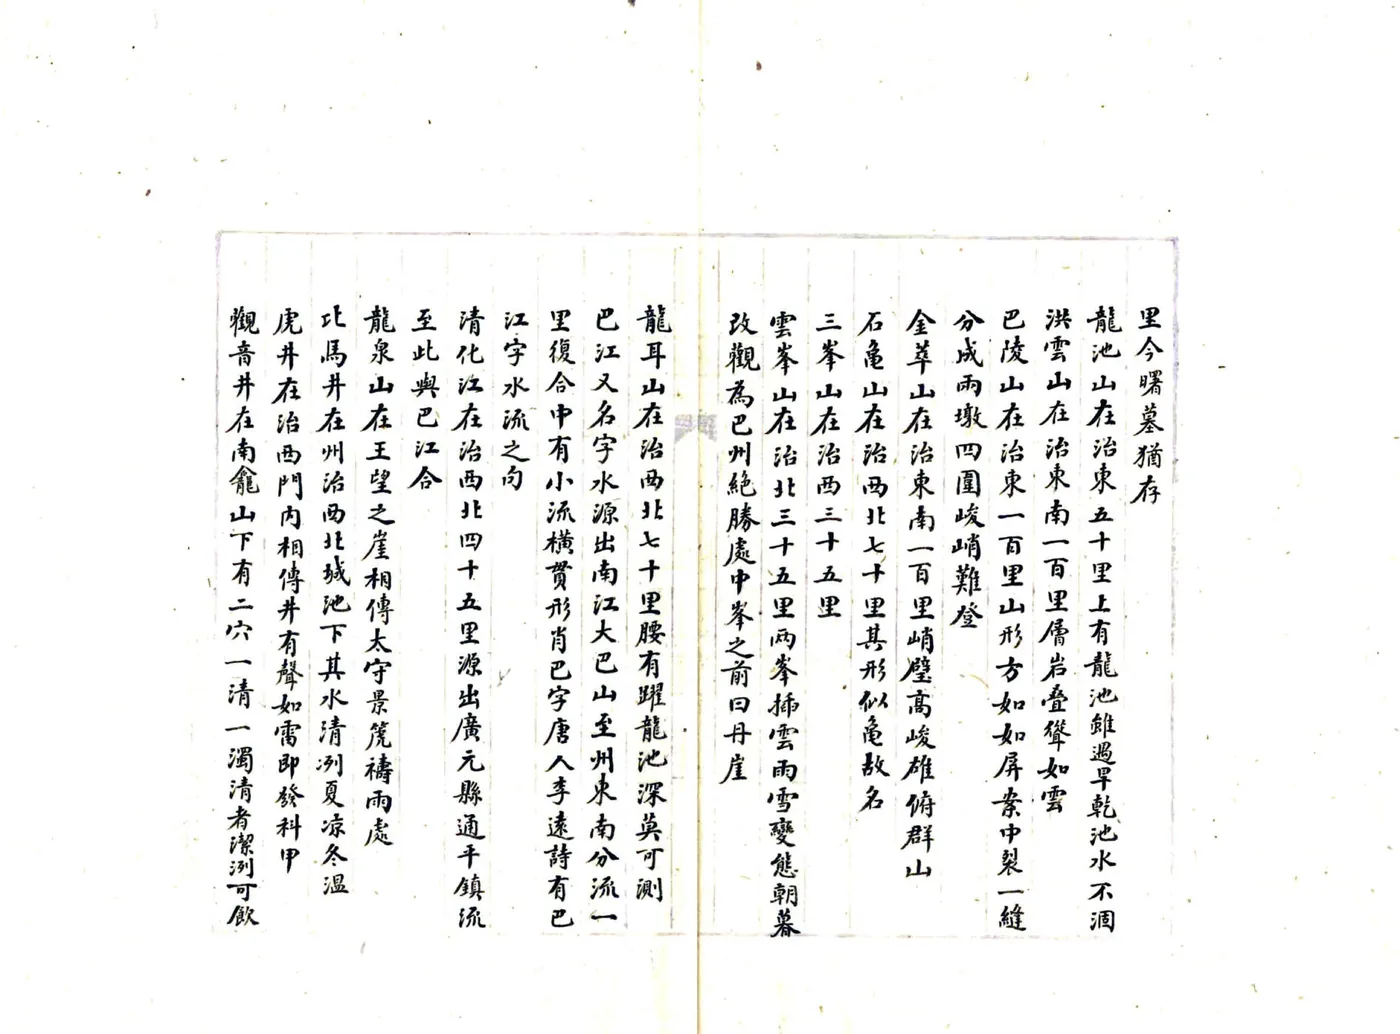 里今曙墓猶存
龍池山在治東五十里上有龍池雖過旱乾池水不涸
洪雲山在治東南一百里層岩疊聳如雲
巴陵山在治東一百里山形方如如屏案中裂一縫
分成兩墩四圍峻峭難登
金萃山在治東南一百里峭壁高峻雄俯群山
石龜山在治西北七十里其形似龜故名
三峯山在治西三十五里
雲峯山在治北三十五里兩峯插雲雨雪變態朝暮
改觀為巴州絶勝處中峯之前曰丹崖
龍耳山在治西北七十里腰有躍龍池深莫可測
巴江又名字水源出南江大巴山至州東南分流一
里復合中有小流橫貫形肖巴字唐人李遠詩有巴
江字水流之句
清化江在治西北四十五里源出廣元縣通平鎮流
至此與巴江合
龍泉山在王望之崖相傳太守景箎禱雨處
北馬井在州治西北城池下其水清冽夏凉冬溫
虎井在治西門內相傳井有聲如雷即發科甲
觀音井在南龕山下有二穴一清一濁清者潔冽可飲